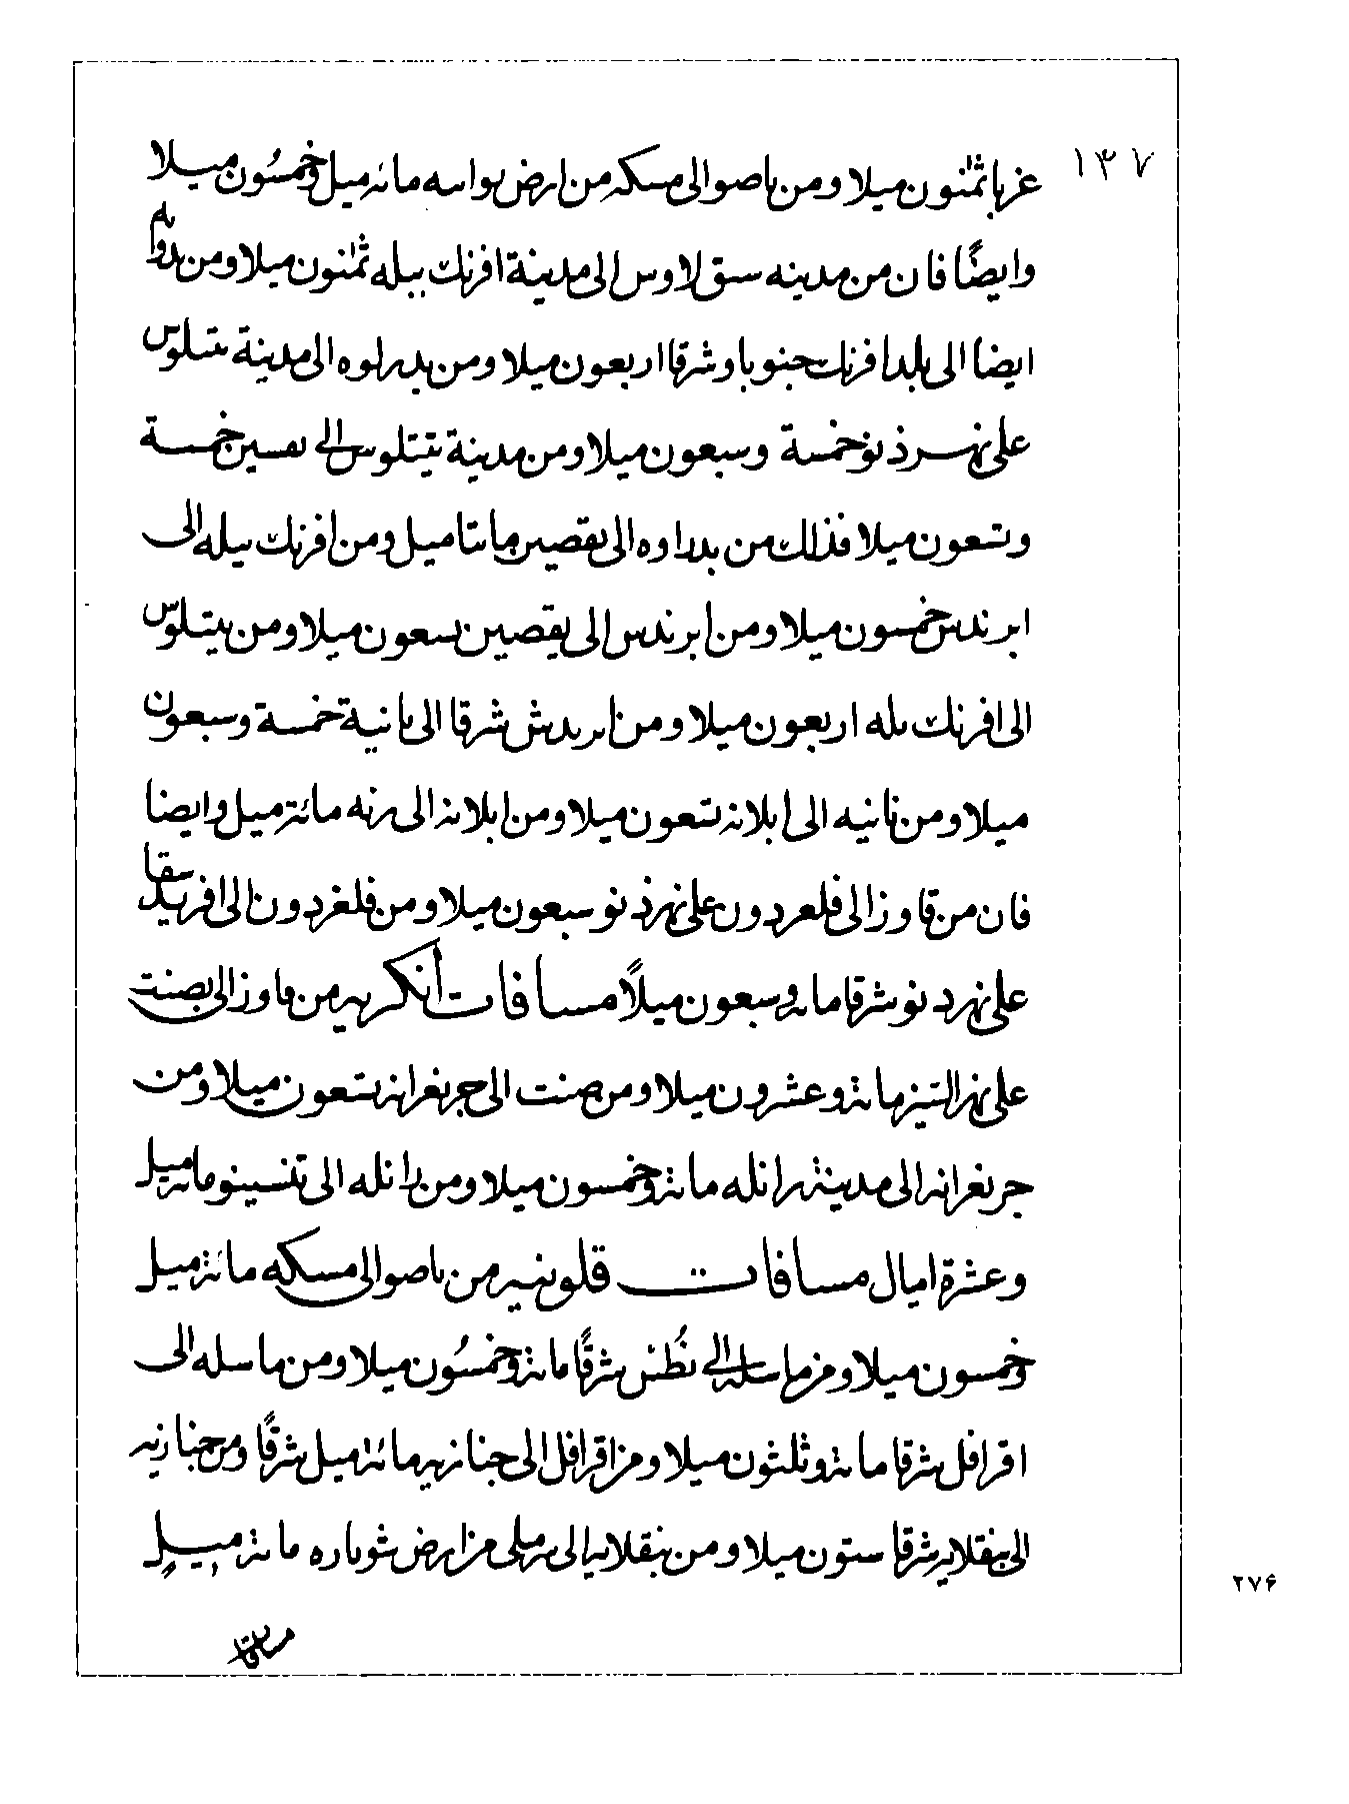 ١٣٧
غربا ثمنون ميلا ومن باصو الى مسكه من ارض بواسه مائة ميل وخمسون ميلا
وايضًا فان من مدينه سق لاوس الى مدينة افرنك بيله ثمنون ميلا ومن بدواره
ايضا الى بلد افرنك جنوبا وشرقا اربعون ميلا ومن بدرلوه الى مدينة تيتلوس
على نهر ذنو خمسة وسبعون ميلا ومن مدينة تيتلوس الى نقسين خمسة
وتسعون ميلا فذلك من بدراوه الى بقصين مائتا ميل ومن افرنك بيله الى
ابرندس خمسون ميلا ومن ابرندس الى بقصين تسعون ميلا ومن تيتلوس
الى افرنك بله اربعون ميلا ومن ابرندش شرقا الى بانية خمسة وسبعون
ميلا ومن نانيه الى ابلانه تسعون ميلا ومن ابلانه الى رنه مائة ميل وايضا
فان من قاورز الى قلعردون على نهر ذنو سبعون ميلا ومن قلغردون الى افرنديسقا
على نهر دنو شرقا مائة وسبعون ميلًا مسافات أنكريه من قاورز الى بصنت
على نهر التيز مائة وعشرون ميلا ومن صنت الى جرنغرانه تسعون ميلا ومن
جرنغرانه الى مدينة رانله مائة وخمسون ميلا ومن رانله الى تنسينو مائة ميل
وعشرة اميال مسافات قلونيه من باصو الى مسكه مائة ميل
وخمسون ميلا ومن ماسله الى نطس شرقًا مائة وخمسون ميلا ومن ماسله الى
اقرافل شرقا مائة وثلثون ميلا ومن اقرافل الى جنازيه مائة ميل شرقًا ومن جنازيه
الى بنقلايه شرقا ستون ميلا ومن بنقلايه الى برملى من ارض شوباره مائة ميل
مسافة
٢٧۶